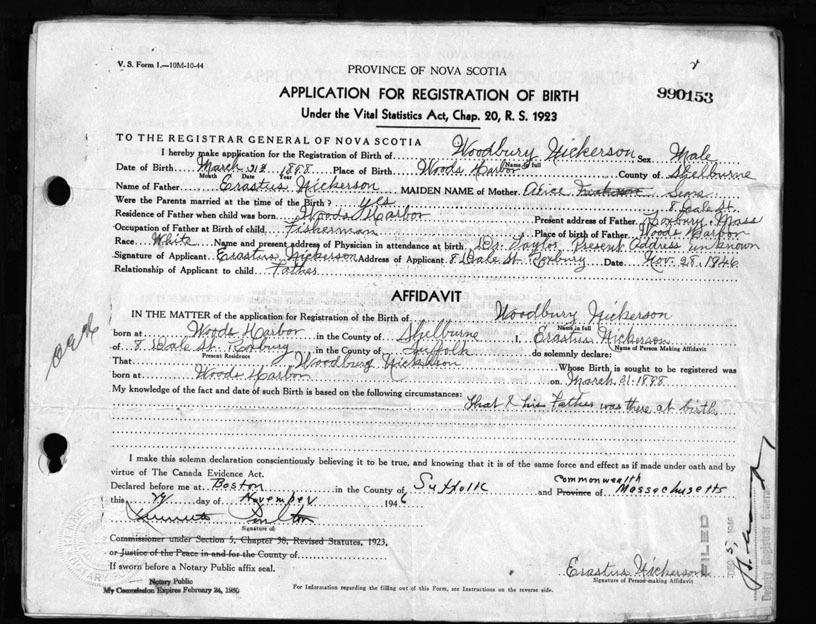 V. S. Form 1.—10M-10-44
PROVINCE OF NOVA SCOTIA
APPLICATION FOR REGISTRATION OF BIRTH
990153
Under the Vital Statistics Act, Chap. 20, R. S. 1923
TO THE REGISTRAR GENERAL OF NOVA SCOTIA
I hereby make application for the Registration of Birth of Woodbury Nickerson Sex Male
Name in full
Date of Birth March Place of Birth Woods Harbor County of Shelburne
Month Date Year
Name of Father Erastus Nickerson MAIDEN NAME of Mother
Were the Parents married at the time of the Birth? yes 8 Dale St.
Residence of Father when child was born Woods Harbor Present address of Father Roxbury Mass
Occupation of Father at Birth of child Fisherman Place of birth of Father Woods Harbor
Race White Name and present address of Physician in attendance at birth Dr. Taylor Present Address unknown
Signature of Applicant Erastus Nickerson Address of Applicant 8 Dale St. Roxbury Date Nov. 29, 1946
Relationship of Applicant to child Father
AFFIDAVIT
IN THE MATTER of the application for Registration of the Birth of Woodbury Nickerson
Name in full
born at Woods Harbor in the County of Shelburne I, Erastus Nickerson
Name of Person Making Affidavit
of 8 Dale St. Roxbury in the County of Suffolk do solemnly declare:
Present Residence
That Woodbury Nickerson Whose Birth is sought to be registered was
born at Woods Harbor on March 21
My knowledge of the fact and date of such Birth is based on the following circumstances:
That I his Father was there at birth
I make this solemn declaration conscientiously believing it to be true, and knowing that it is of the same force and effect as if made under oath and by
virtue of The Canada Evidence Act.
Declared before me at Boston in the County of Suffolk and Province of Commonwealth Massachusetts
this 29 day of November 1946
Signature of
Commissioner under Section 5, Chapter 38, Revised Statutes, 1923,
or Justice of the Peace in and for the County of
If sworn before a Notary Public affix seal.
Erastus Nickerson
Signature of Person making Affidavit
Notary Public
My Commission Expires February 24, 1950
For Information regarding the filling out of this Form, see Instructions on the reverse side.
FILED
Deputy Registrar General